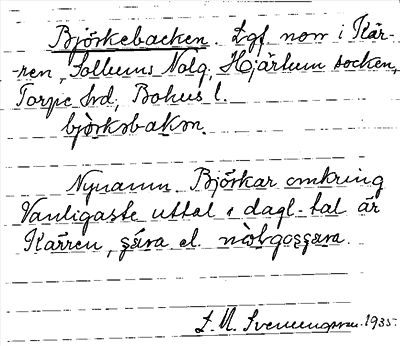 Björkebacken. Lgf norr i Kär-
ren, Sollums Nolg, Hjärtum socken,
Torpe hd, Bohus l.
bjòrkəbakən.
Nynamn. Björkar omkring
Vanligaste uttal i dagl. tal är
Kärren, el.
S. M. Svenungsson. 1935.